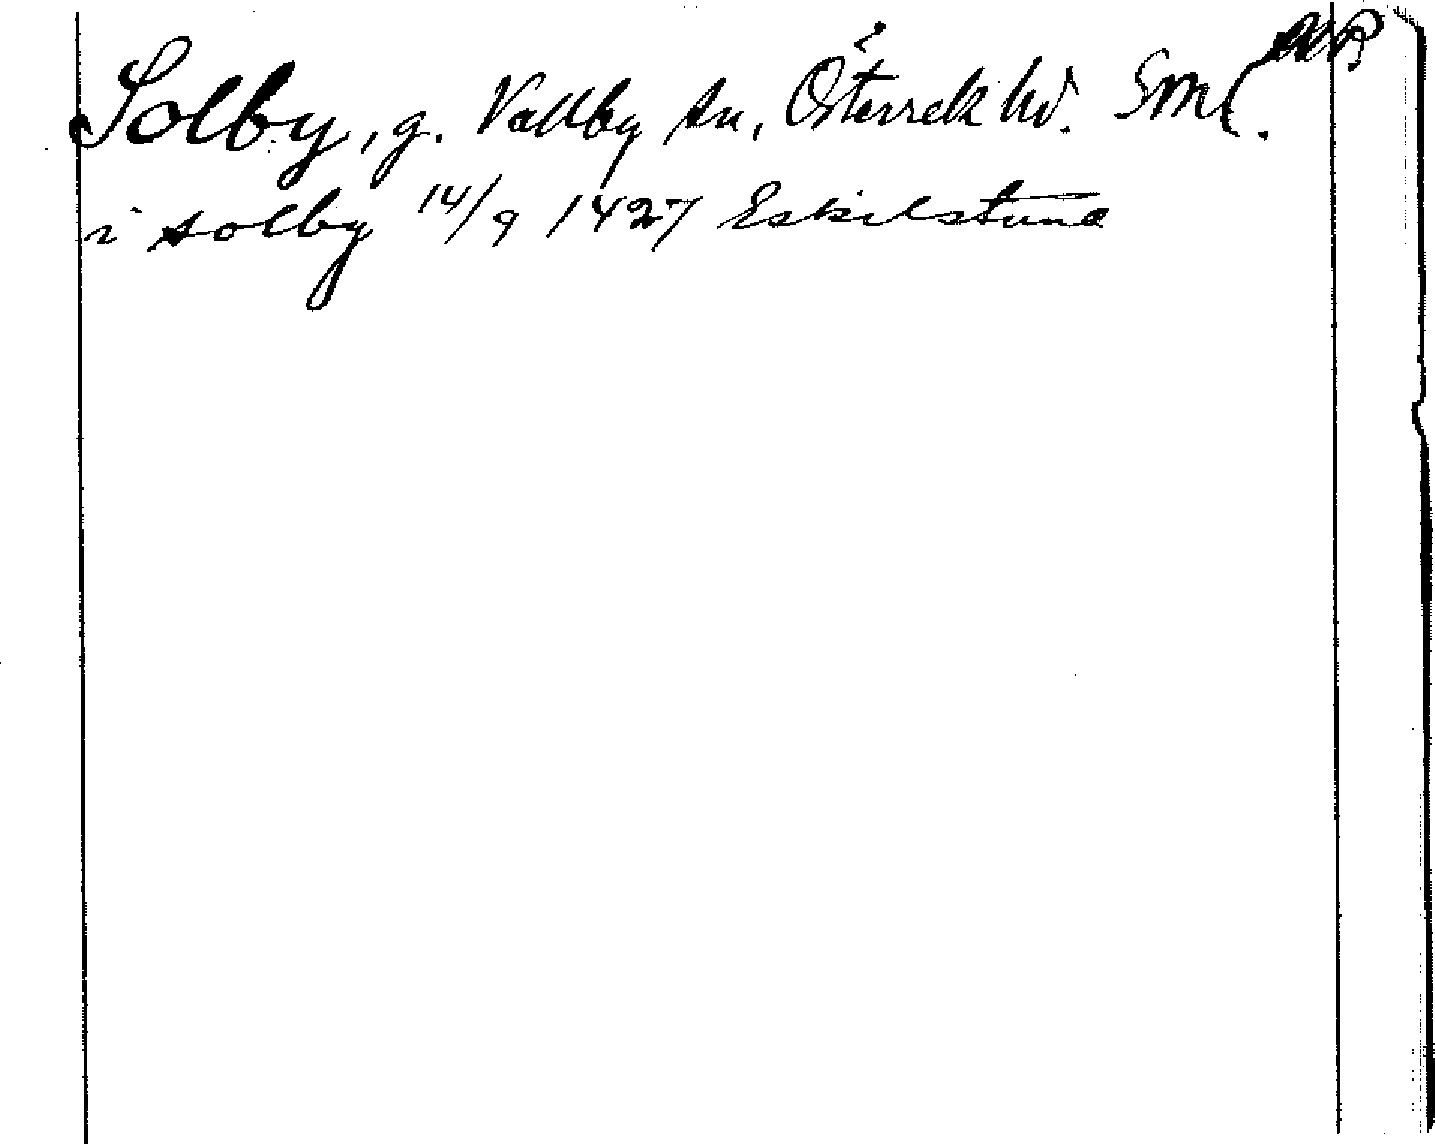 Solby, g. Vallby sn, Österrek hd. Sml.
i solby 14/9 1427 Eskilstuna